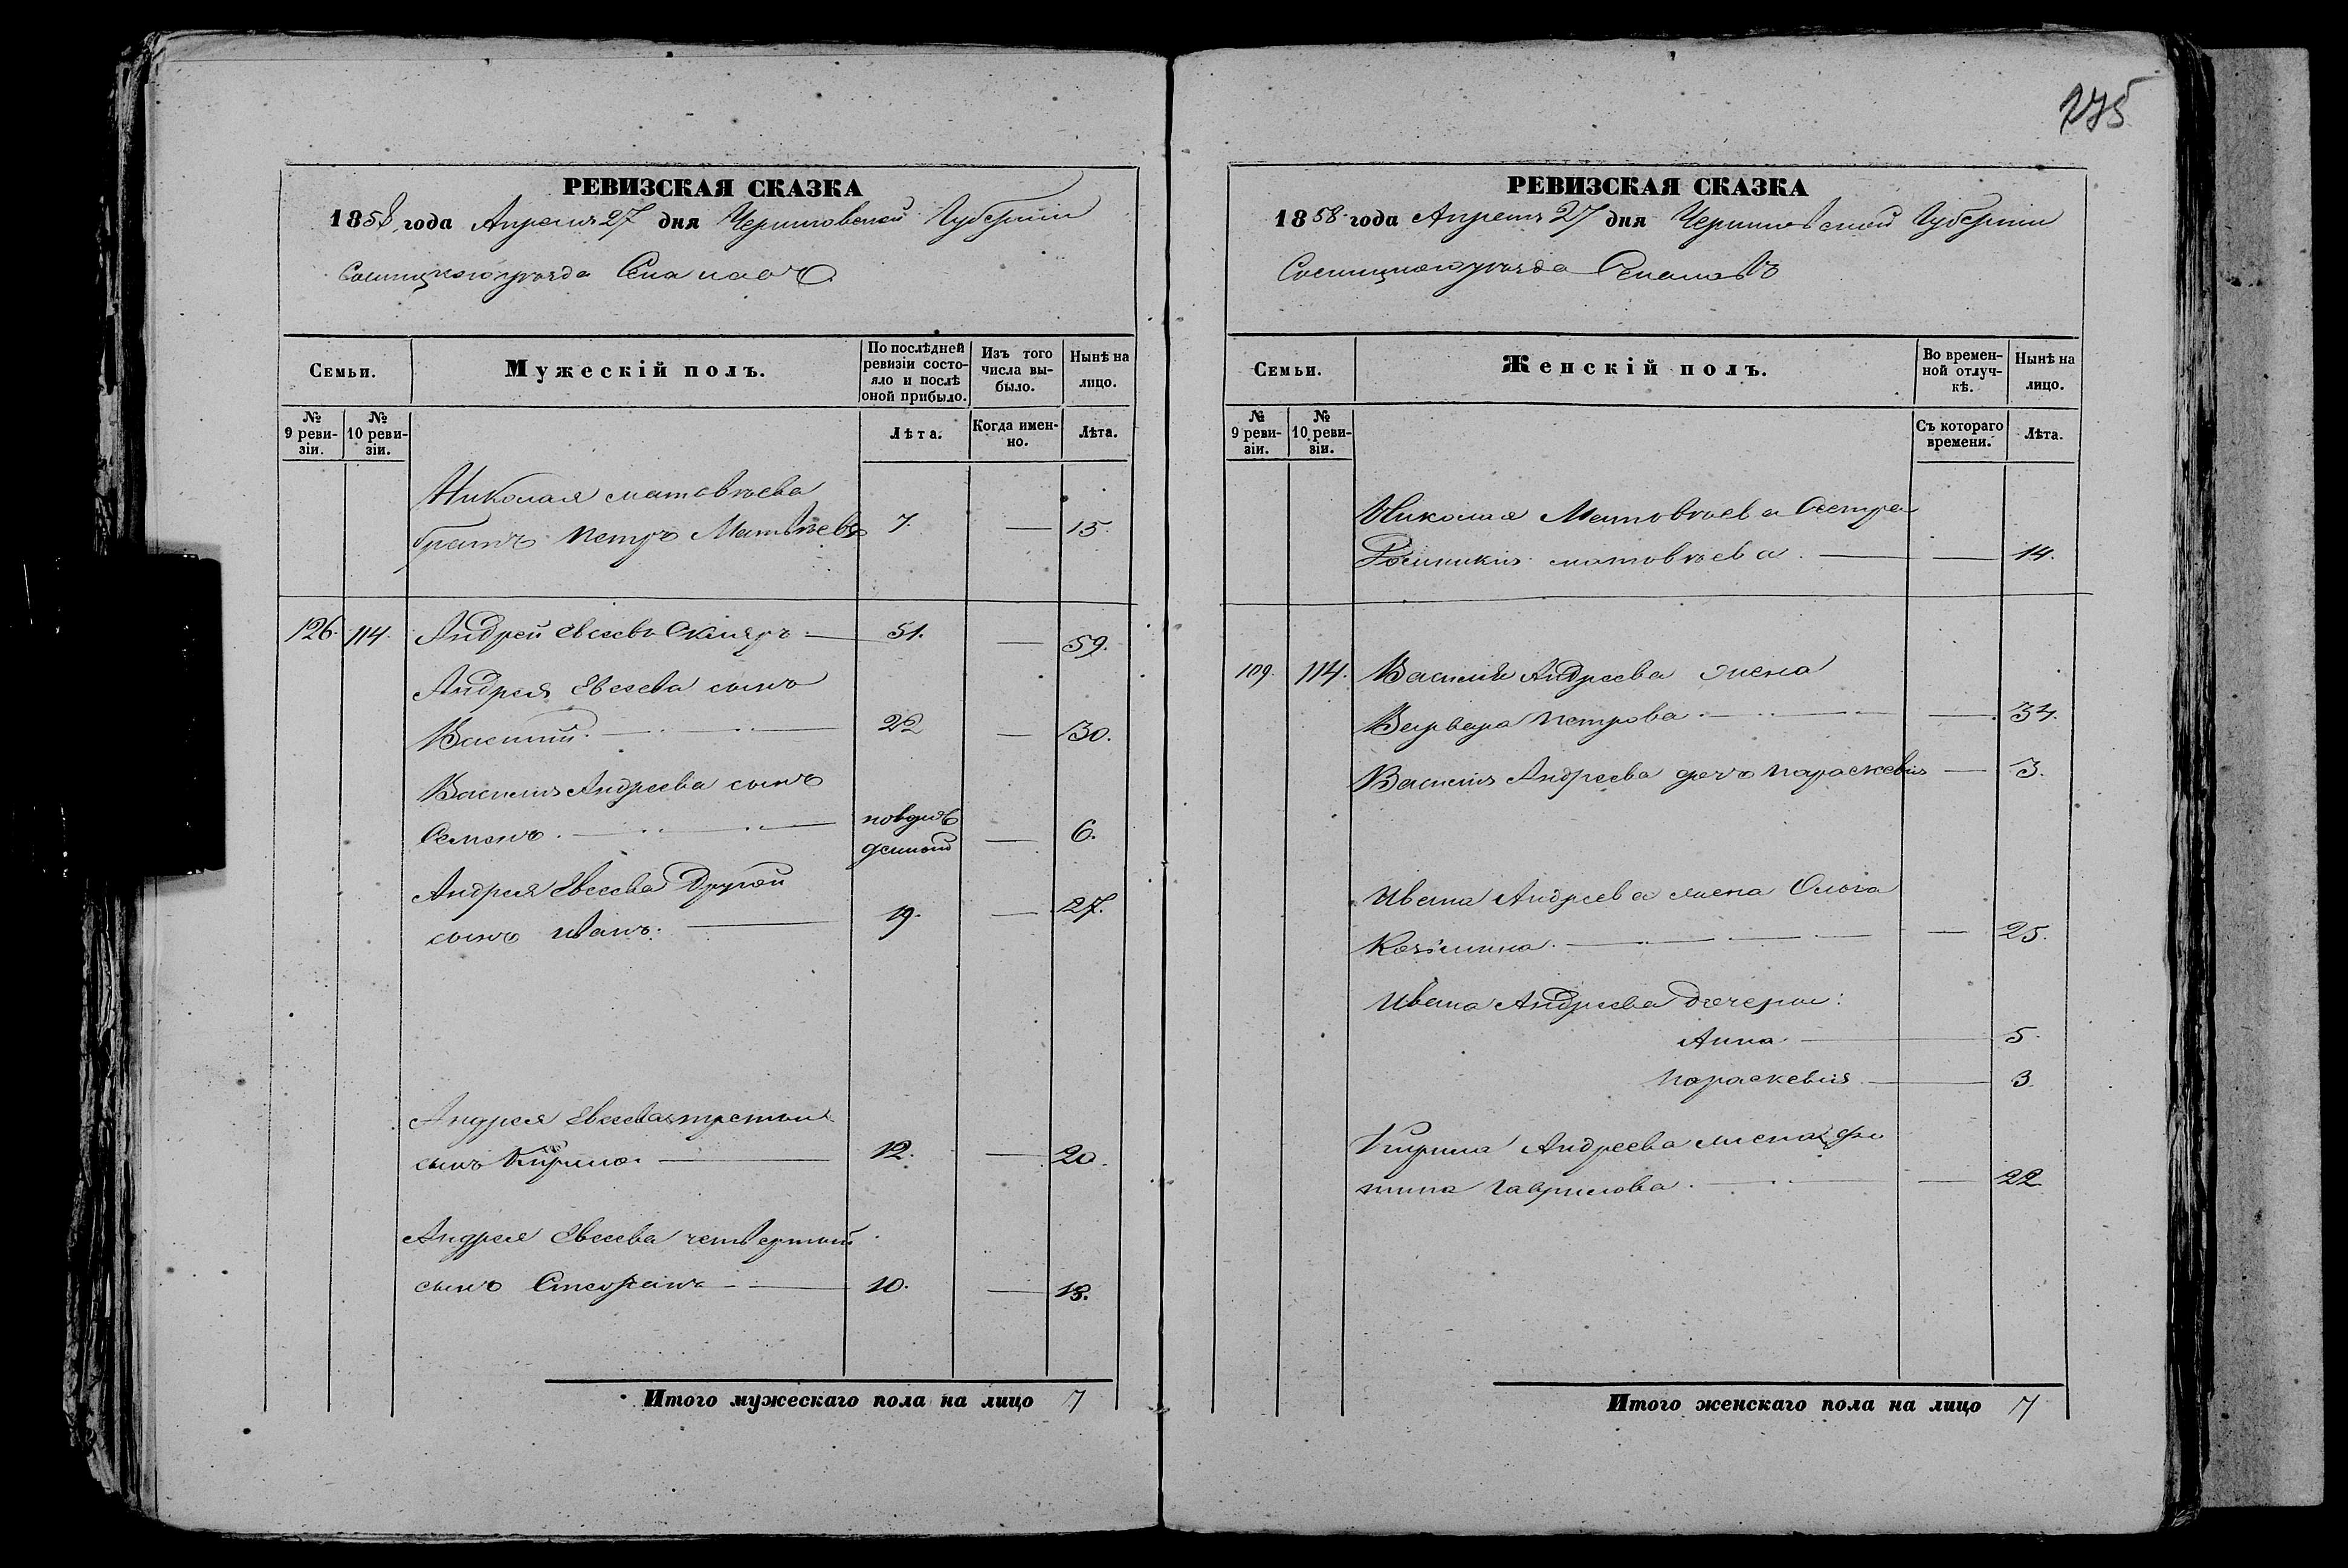 275
РЕВИЗСКАЯ СКАЗКА
1858 года Апреля 27 дня Черниговской Губернии
Сосницкого уезда
Семьи.
Мужескій полъ.
По послѣдней ревизіи состояло и послѣ оной прибыло.
Изъ того числа выбыло.
Нынѣ на лицо.
№ 9 ревизіи.
№ 10 ревизіи.
Лѣта.
Когда именно.
Лѣта.
Николая Матвѣева
братъ Петръ Матвѣевъ 7. — 15
126. 114. Андрей Евсеевъ Скляръ — 51. — 59.
Андрея Евсеева сынъ
Василий. — 22 — 30.
Василия Андреева сынъ
Семенъ. — 6.
Андрея Евсеева Другой
сынъ Иванъ. — 19. — 27.
Андрея Евсеева третий
сынъ Кирило. — 12. — 20.
Андрея Евсеева четвертый
сынъ Стефанъ — 10. — 18.
Итого мужескаго пола на лицо 7
РЕВИЗСКАЯ СКАЗКА
1858 года Апреля 27 дня Черниговской Губернии
Сосницкого уезда
Семьи.
Женскій полъ.
Во временной отлучкѣ.
Нынѣ на лицо.
№ 9 ревизіи.
№ 10 ревизіи.
Съ котораго времени.
Лѣта.
Николая Матвѣева Сестра
Матвѣева. — — 14.
109. 114. Василия Андреева жена
Варвара Петрова. — — 34.
Василия Андреева дочь Параскевия — 3.
Ивана Андреева жена Олга
— — 25.
Ивана Андреева дочери:
Анна — 5.
Параскевия. — 3
Кирила Андреева жена
Гаврилова. — — 22.
Итого женскаго пола на лицо 7